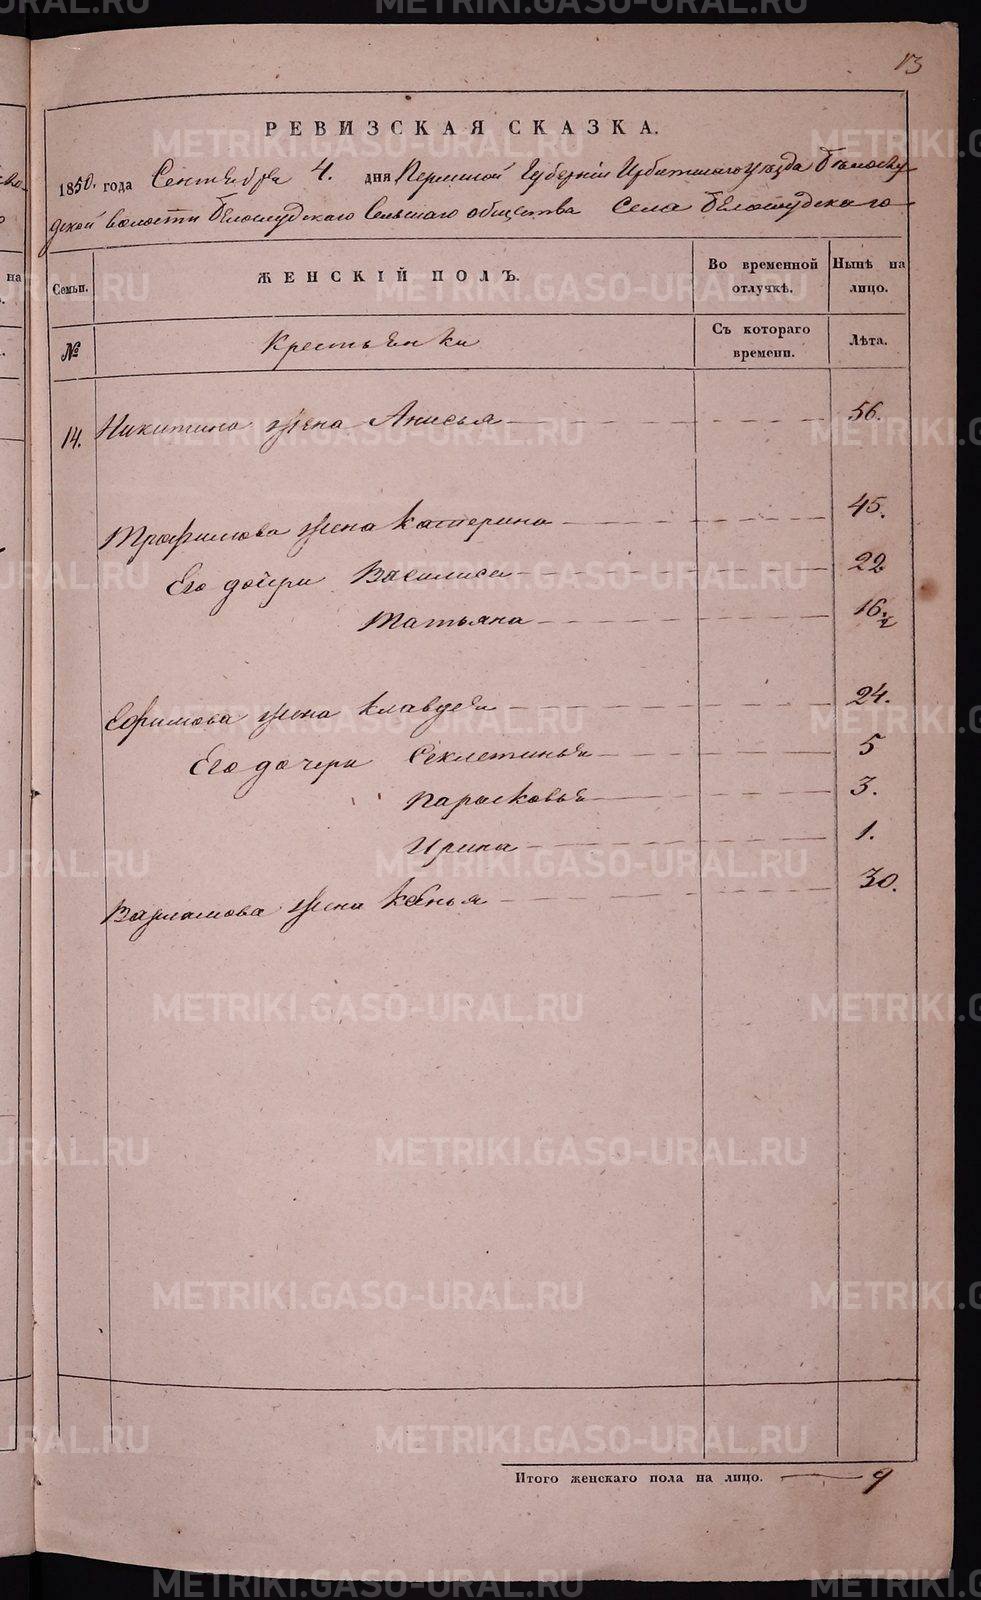 13
РЕВИЗСКАЯ СКАЗКА.
1850. года Сентебря 4. дня Пермской Губернiи Ирбитскаго уезда Белослу
дской волости Белослудскаго Сельскаго общества Села Белослудскаго
Семьи.
ЖЕНСКІЙ ПОЛЪ.
Во временной отлучкѣ.
Нынѣ на лицо.
№
Крестьенки
Съ котораго времени.
Лѣта.
14. Никитина жена Анисья 56.
Трофимова жена Катерина 45.
Его дочери Василиса 22
Татьяна 16½
Ефимова жена Клавдея 24.
Его дочери Секлетинья 5
Парасковья 3.
Ирина 1.
Варламова жена 30.
Итого женскаго пола на лицо. 9
METRIKI.GASO-URAL.RU